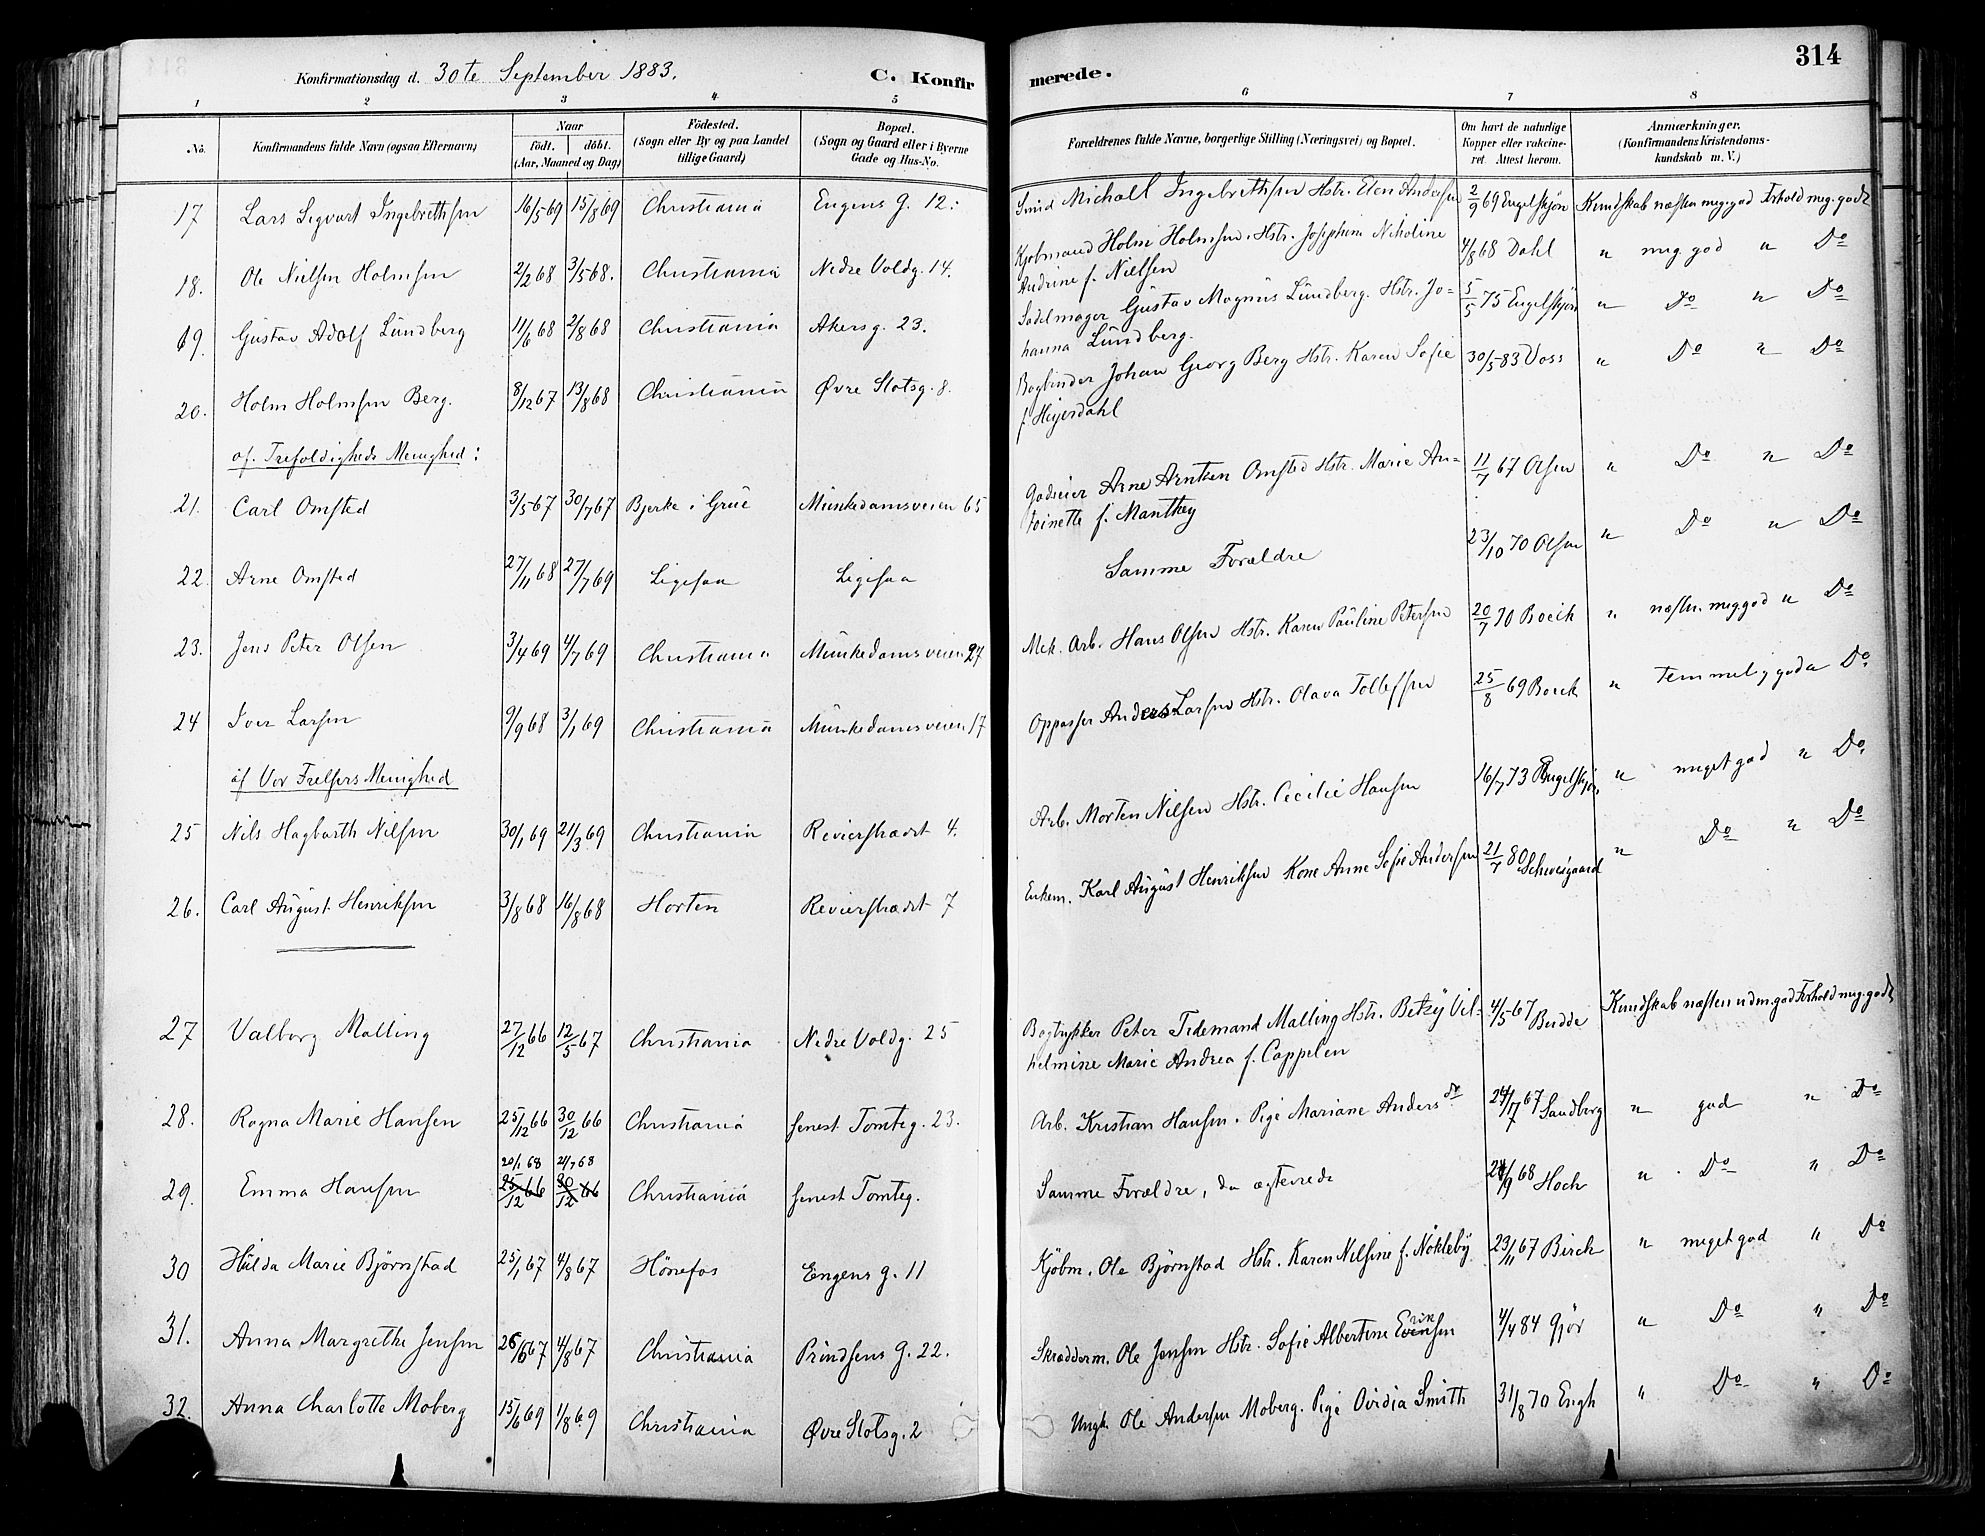 314
Konfirmationsdag d. 30te September 1883.
C. Konfirmerede.
1 2 3 4 5 6 7 8
No.
Konfirmandens fulde Navn (ogsaa Efternavn)
Naar
födt. döbt.
(Aar, Maaned og Dag)
Födested.
(Sogn eller By og paa Landet
tillige Gaard)
Bopæl.
(Sogn og Gaard eller i Byerne
Gade og Hus-No.
Forældrenes fulde Navne, borgerlige Stilling (Næringsvei) og Bopæl.
Om havt de naturlige
Kopper eller vakcine-
ret Attest herom.
Anmærkninger.
(Konfirmandens Kristendoms-
kundskab m. V.)
17 Lars Sigvart Ingebrethsen 16/5 69 15/8 69 Christiania Engens G. 12. Smid Michall Ingebrethsen Hstr. Elen Andersen 2/9 69 Engelskjøn Kundskab næsten meg. god Forhold meg. godt
18. Ole Nielsen Holmsen 2/2 68 3/5 68. Christiania Nedre Voldg. 14. Kjøbmand Holm Holmsen. Hstr. Josephine Nicholine
Andrine f. Nielsen 4/8 68 Dahl " meg god " Do
19. Gustav Adolf Lundberg 11/6 68 2/8 68 Christiania Akersg. 23. Sadelmager Gustav Magnus Lundberg. Hstr. Jo-
hanna Lundberg. 5/5 75 Engelskjøn " Do " Do
20. Holm Holmsen Berg. 8/12 67 13/8 68 Christiania Øvre Slotsg. 8. Bogbinder Johan Georg Berg Hstr. Karen Sofie
f. Heyerdahl 30/5 83 Voss " Do " Do
af. Trefoldigheds Menighed:
21. Carl Omsted 3/5 67 30/7 67 Bjerke i Grue Munkedamsveien 65 Godseier Arne Arntzen Omsted Hstr. Marie An-
toinette f. Manthey 11/7 67 Olsen " Do " Do
22. Arne Omsted 27/11 68 27/7 69 Ligesaa Ligesaa Samme Forældre 23/10 70 Olsen " Do " Do
23. Jens Peter Olsen 3/4 69 4/7 69 Christiania Munkedamsveien 27 Mek. Arb. Hans Olsen Hstr. Karen Pauline Petersen 20/7 70 Boeck " næsten meg god " Do
24 Iver Larsen 9/9 68 3/1 69 Christiania Munkedamsveien 17 Oppasser Anders Larsen Hstr. Olava Tollefsen 25/8 69 Boeck " Temmelig god " Do.
af Vor Frelsers Menighed
25 Nils Hagbarth Nilsen 30/1 69 21/3 69 Christiania Revierstrædet 4. Arb. Morten Nilsen Hstr. Cecilie Hansen 16/7 73 Engelskjøn " meget god " Do.
26. Carl August Henriksen 3/8 68 16/8 68 Horten Revierstrædet 7 Enkem. Karl August Henriksen Kone Anne Sofie Andersen 21/7 80 Schweigaard " Do " Do
27 Valborg Malling 27/12 66 12/5 67 Christiania Nedre Voldg. 25 Bogtrykker Peter Tidemand Malling Hstr. Betzy Vil-
helmine Marie Andrea f. Cappelen 4/5 67 Budde Kundskab næsten udm. god Forhold meg. godt
28. Ragna Marie Hansen 25/12 66 30/12 66 Christiania senest Tomteg. 23. Arb. Kristian Hansen. Pige Mariane Anders dr 24/7 67 Sandberg " god " Do
20/1 68 21/7 68
29. Emma Hansen 25/12 66 30/12 66 Christiania senest Tomteg. Samme Forældre, da ægteviede 24/9 68 Hoch " Do " Do
30 Hilda Marie Bjørnstad 25/1 67 4/8 67 Hönefos Engens g. 11 Kjöbm. Ole Bjørnstad Hstr. Karen Nilsine f. Nokleby 23/11 67 Birch " meget god " Do
31. Anna Margrethe Jensen 26/6 67 4/8 67 Christiania Prindsens G. 22. Skrædderm. Ole Jensen Hstr. Sofie Albertine Eriksen 4/4 84 Gjör " Do " Do
32. Anna Charlotte Moberg 15/6 69 1/8 69 Christiania Øvre Slotsg. 2 Ungk. Ole Andersen Moberg. Pige Ovidia Smith 31/8 70 Engh " Do " Do